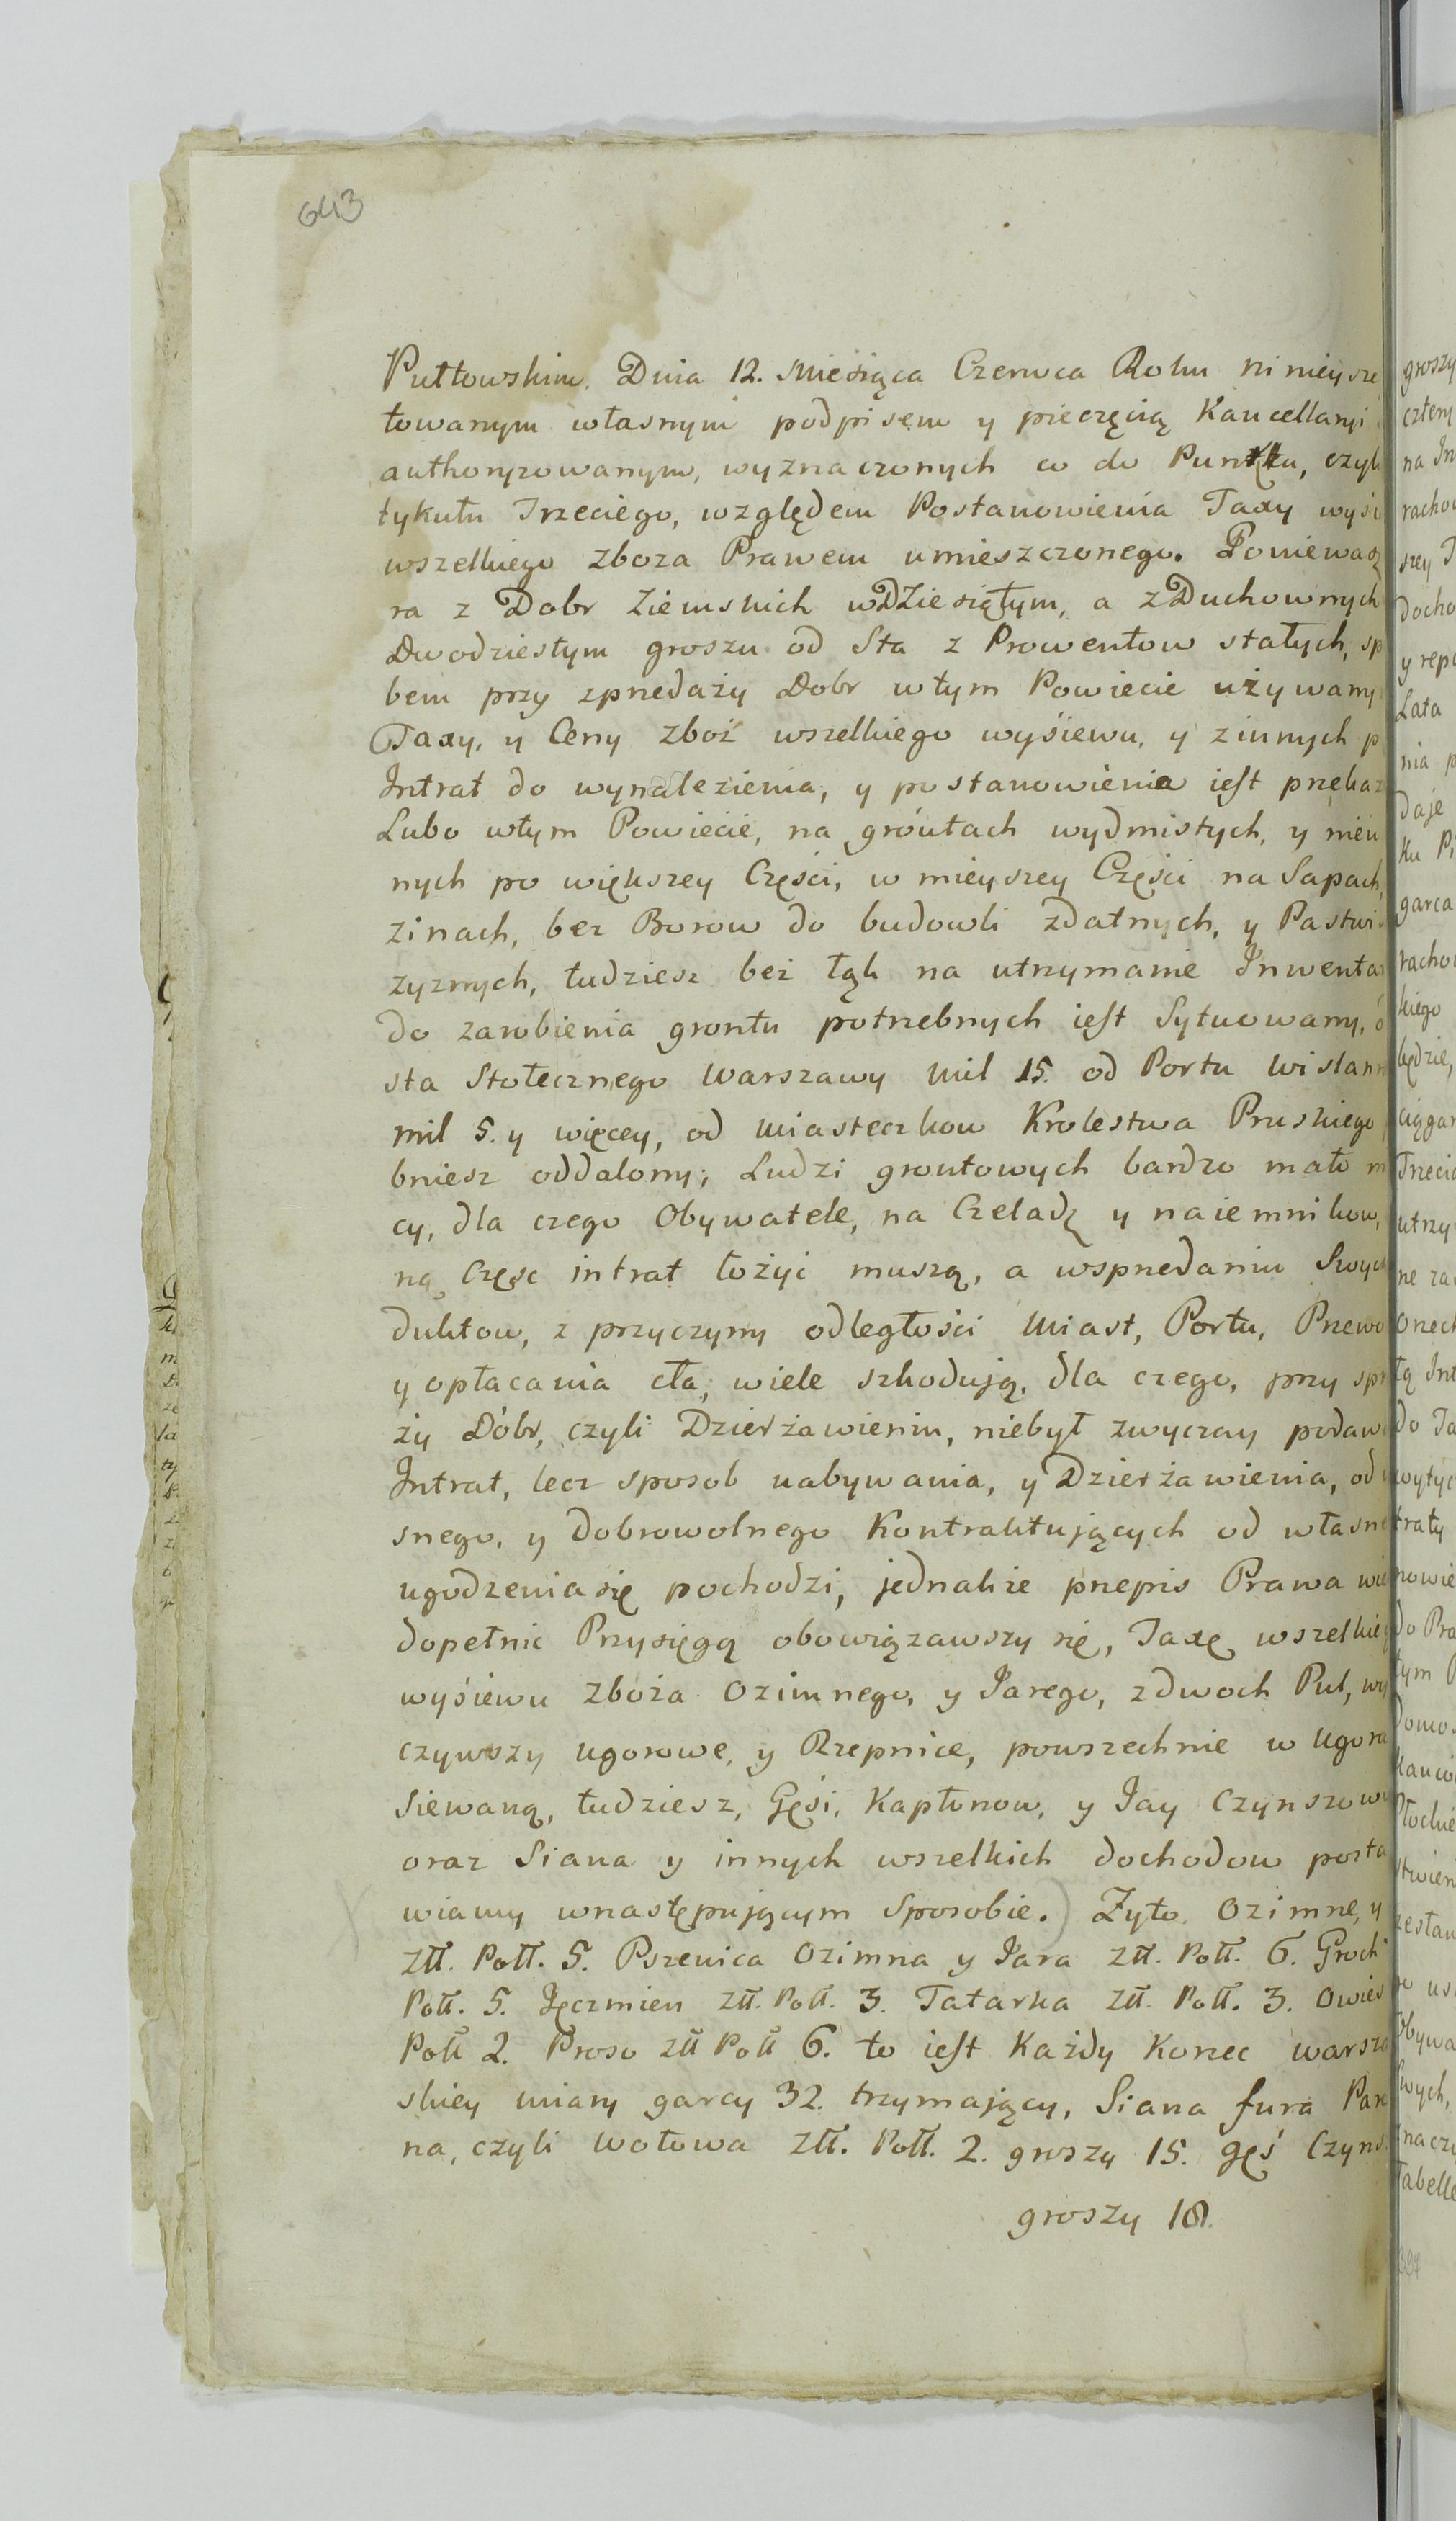 643
Pułtowskim. Dnia 12. Miesiąca Czerwca Roku ninieysze
towanym własnym podpisem y pieczęcią Kancellaryi
authoryzowanym, wyznaczonych co do Punktu, czyli
tykułu Trzeciego, względem Postanowienia Taxy wysi
wszelkiego zboza Prawem umieszczonego. Poniewasz
ra z Dobr Ziemskich wDziesiątym, a zDuchownych
Dwodziestym groszu od Sta z Prowentow stałych, sp
bem przy zprzedaży Dobr wtym Powiecie używany
Taxy, y Ceny zboż wszelkiego wyśiewu, y zinnych p
Intrat do wynalezienia, y postanowienia iest przekaz
Lubo wtym Powiecie, na gróntach wydmistych, y nieu
nych po większey Częśći, w mieyszey Częśći na Sapach,
zinach, bez Borow do budowli zdatnych, y Pastwi
zyznych, tudziesz bez łąk na utrzymanie Inwenta
do zarobienia grontu potrzebnych iest Sytuowany, ó
sta Stołecznego Warszawy mil 15. od Portu wislann
mil 5. y więcey, od Miasteczkow Krolestwa Pruskiego
bniesz oddalony; Ludzi grontowych bardzo mało m
cy, dla czego Obywatele, na Czeladz y naiemnikow,
ną Częsc intrat łożyć muszą, a wsprzedaniu Swych
duktow, z przyczyny odległości Miast, Portu, Przewo
y opłacania cła, wiele szkodują, dla czego, przy spr
ży Dóbr, czyli Dzierżawieniu, niebył zwyczay podaw
Intrat, lecz sposob nabywania, y Dzierżawienia, od
snego, y dobrowolnego Kontraktujących od własne
ugodzenia się pochodzi, jednakże przepis Prawa wie
dopełnic Przysięgą obowiązawszy się, Taxę wszelkieg
wyśiewu zboża Ozimnego, y Jarego, zdwoch Pul, wy
czywszy ugorowe, y Rzepnice, powszechnie w Ugora
Siewaną, tudziesz, Gęśi, Kapłonow, y Jay Czynszowy
oraz Siana y innych wszelkich dochodow posta
wiamy wnastępującym Sposobie. Zyto Ozimne, y
Złł. Poll. 5. Pszenica Ozimna y Jara Złł. Poll. 6. Groch
Poll. 5. Jęczmien Złł. Poll. 3. Tatarka Złł. Poll. 3. Owies
Poll 2. Proso Złł Poll 6. to iest Każdy Korzec warsza
skiey miary garcy 32. trzymający, Siana fura Par
na, czyli wołowa Złł. Poll. 2. groszy 15. gęś Czyns
groszy 18.
groszy
cztery
na In
racho
szey T
docho
y rep
Lata
nia p
daje
Ku P
garca
racho
kiego
będzie,
ciągar
Trzeci
utrzy
ne za
Onech
tą Int
do Ta
wytyc
traty
nowie
do Pra
tym P
Domo
Obywa
Swych,
naczy
Tabelle